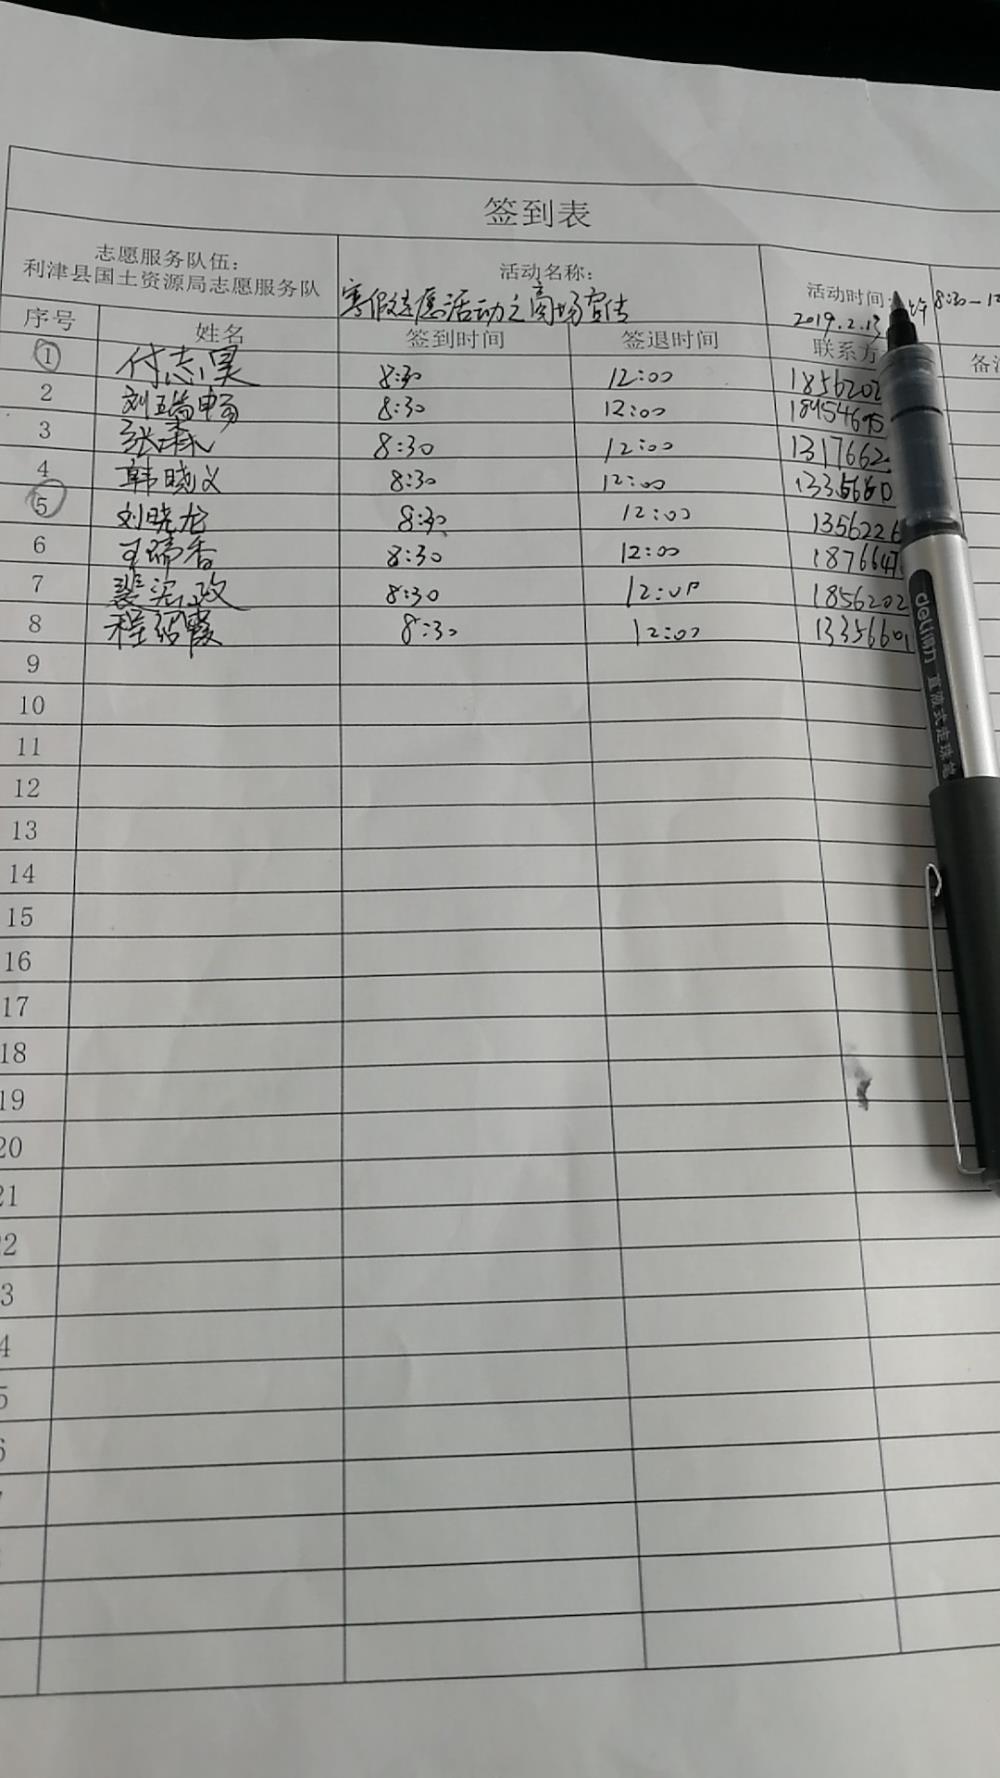 签到表
志愿服务队伍：
利津县国土资源局志愿服务队
活动名称：
寒假志愿活动之商场宣传
活动时间：
2019.2.13 上午 8:30-12
序号 姓名 签到时间 签退时间 联系方 备注
1 付志昊 8:30 12:00 1856202
2 刘瑞畅 8:30 12:00 18454695
3 张霖 8:30 12:00 1317662
4 韩晓义 8:30 12:00 1335660
5 刘晓龙 8:30 12:00 1356226
6 王瑞香 8:30 12:00 1876647
7 裴宪政 8:30 12:00 1856202
8 程绍霞 8:30 12:00 13356601
9
10
11
12
13
14
15
16
17
18
19
20
21
22
3
4
5
6
deli得力 直液式走珠笔